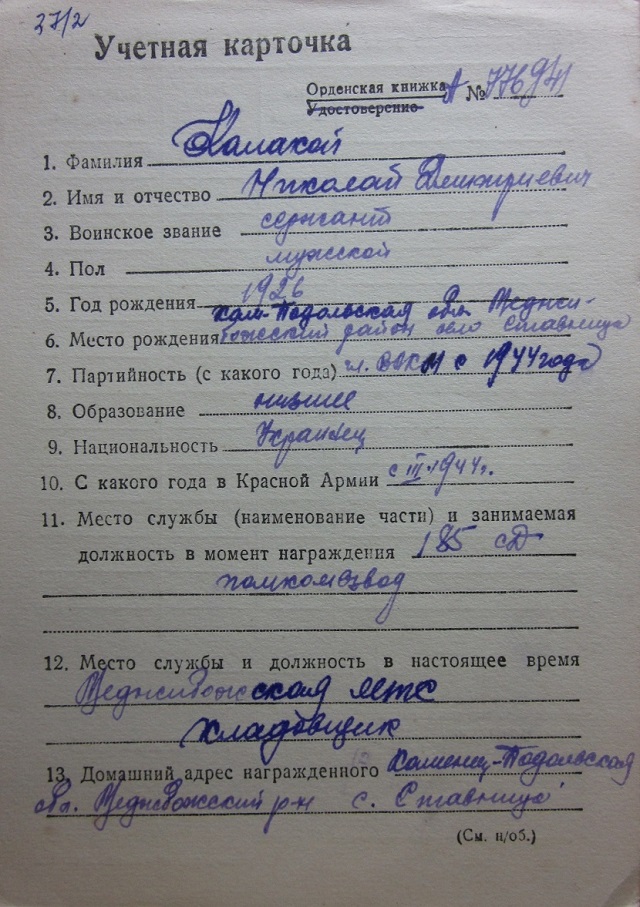 37/2
Учетная карточка
Орденская книжка А № 776941
Удостоверение
1. Фамилия
2. Имя и отчество Николай Дмитриевич
3. Воинское звание сержант
4. Пол мужской
5. Год рождения 1926
кам-Подольская обл. Меджи-
6. Место рождения божский район село Ставница
7. Партийность (с какого года) чл. ВЛКСМ с 1944 года
8. Образование низшее
9. Национальность Украинец
10. С какого года в Красной Армии с III-1944г.
11. Место службы (наименование части) и занимаемая
должность в момент награждения 185 сд
помкомвзвод
12. Место службы и должность в настоящее время
Меджибожская мтс
кладовщик
13. Домашний адрес награжденного Каменец-Подольская
обл. Меджибожский р-н с. Ставница
(См. н/об.)